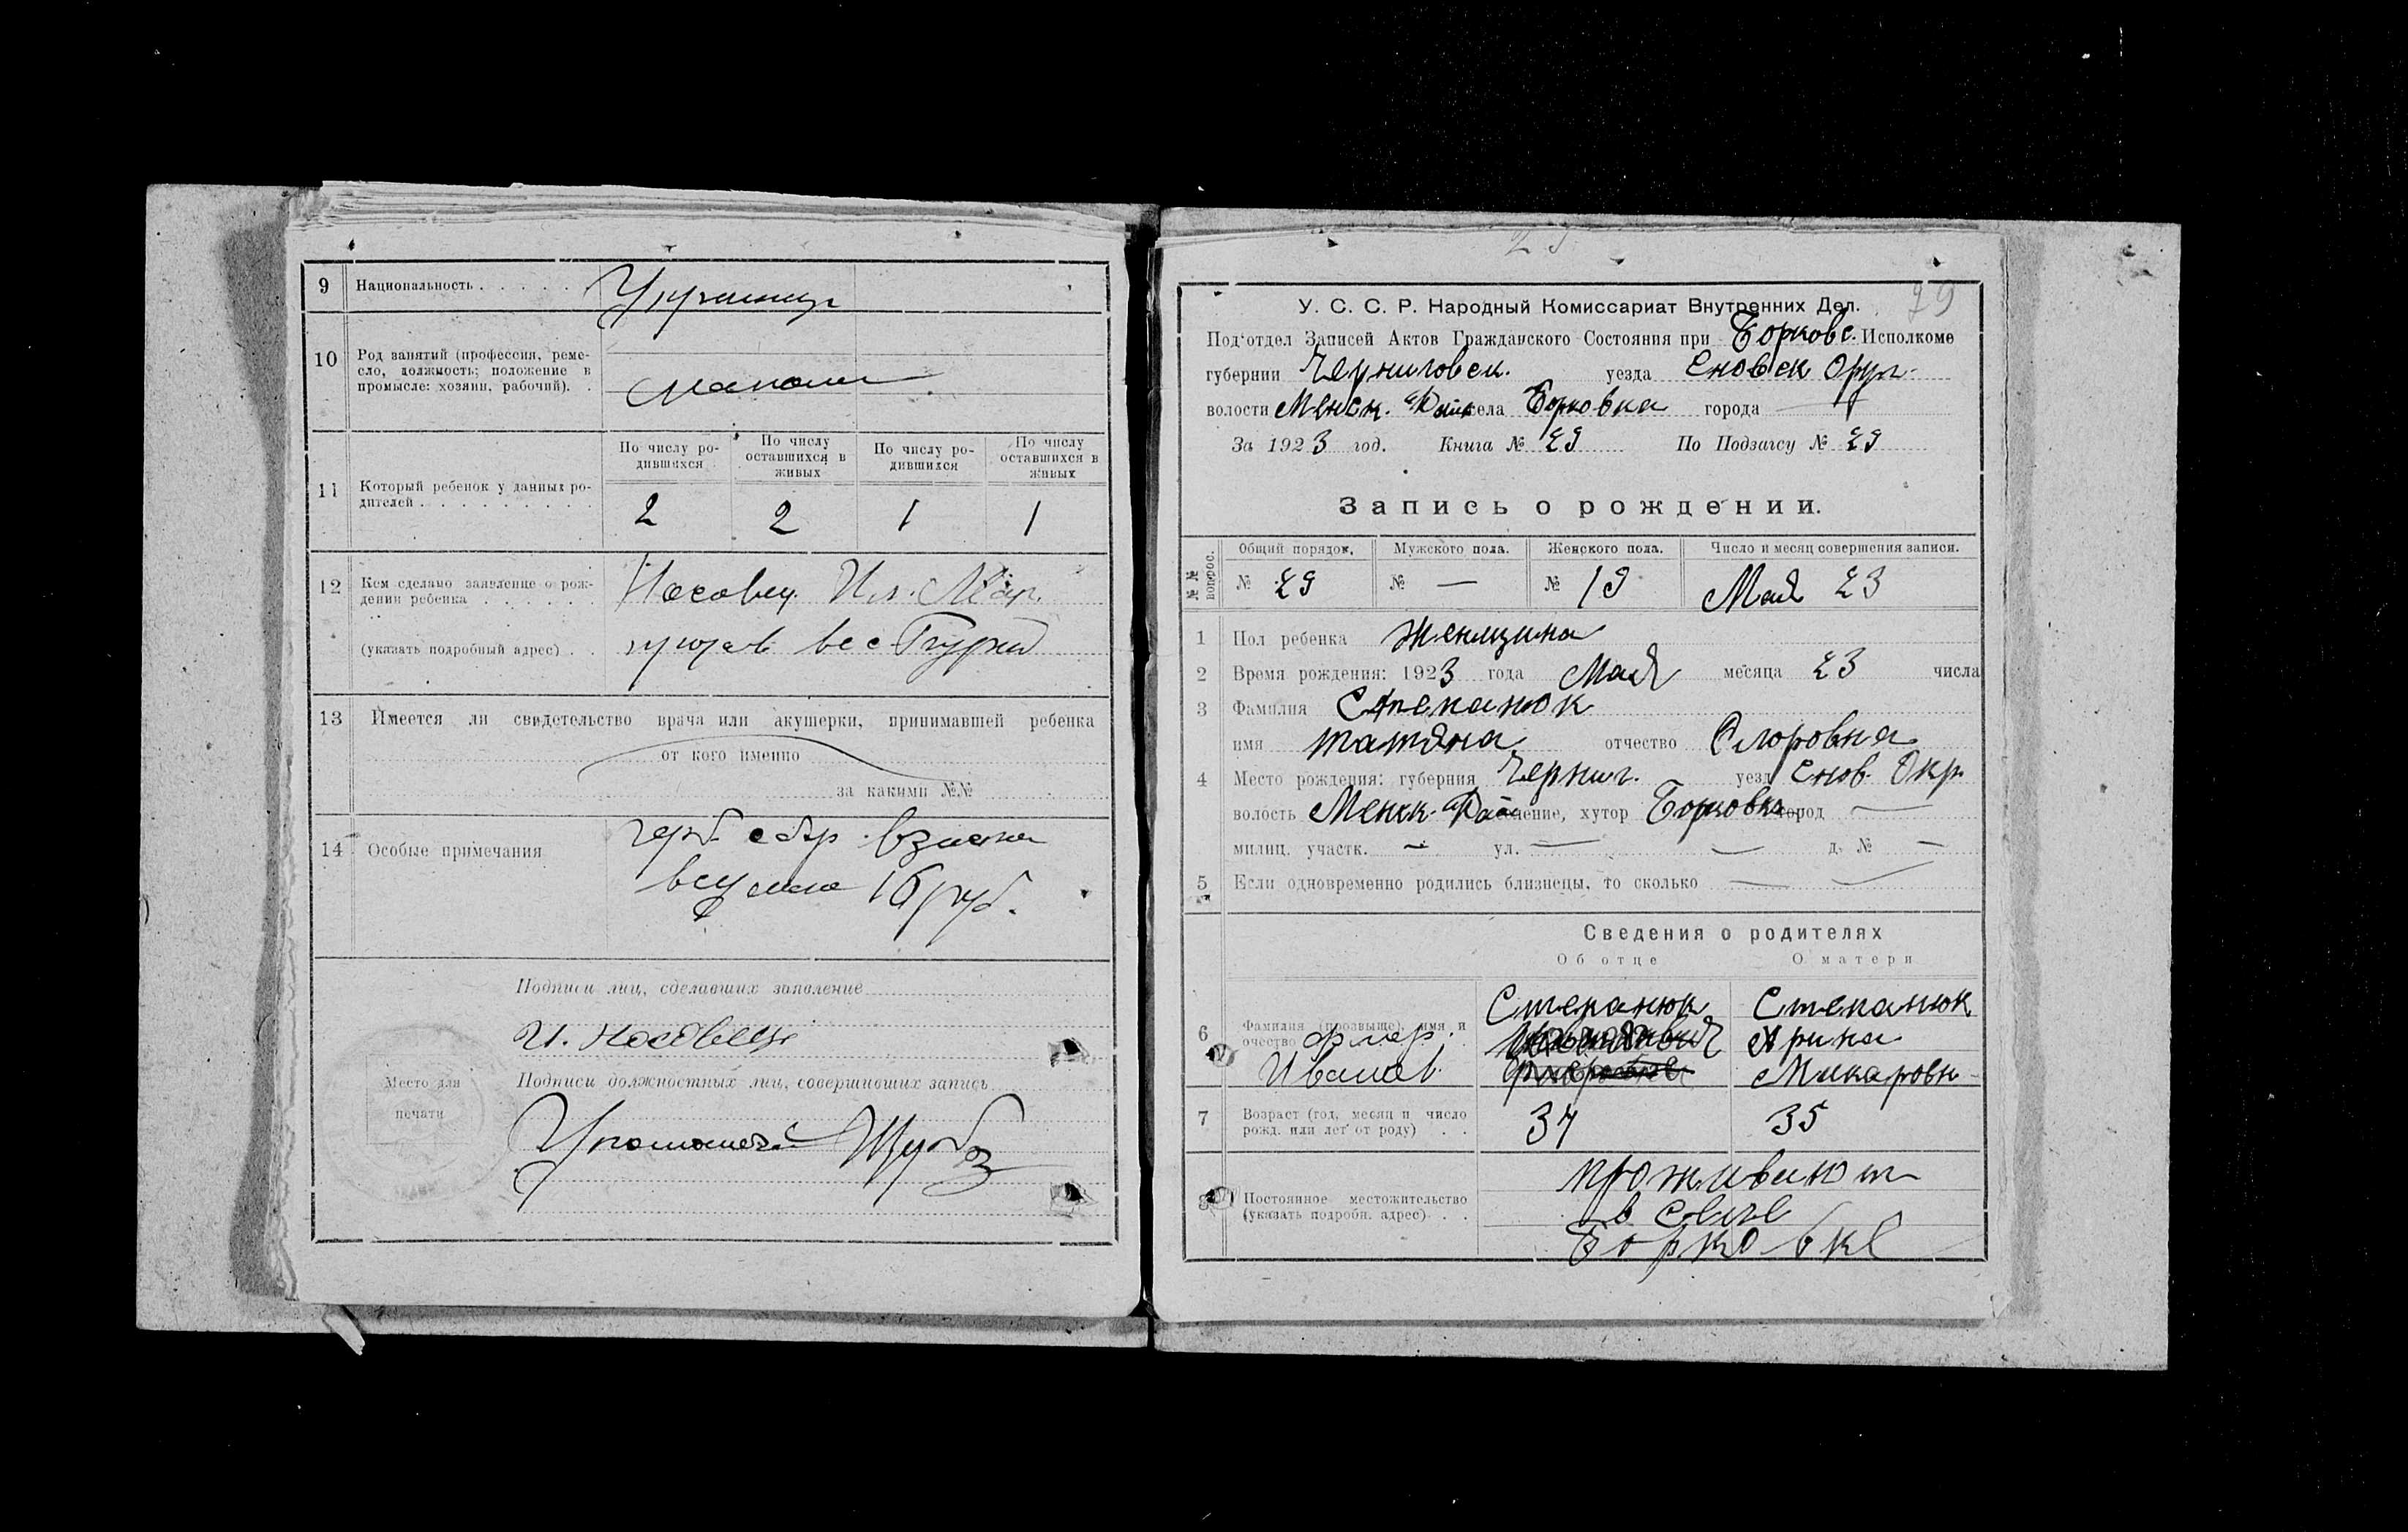 9 Национальность . . . . . Украинцы
10 Род занятий (профессия, реме-
сло, должность; положение в
промысле: хозяин, рабочий). .
По числу ро-
дившихся
По числу
оставшихся в
живых
По числу ро-
дившихся
По числу
оставшихся в
живых
11 Который ребенок у данных ро-
дителей . . . . . . . . .
2 2 1 1
12 Кем сделано заявление о рож-
дении ребенка . . . . . .
(указать подробный адрес) . .
13 Имеется ли свидетельство врача или акушерки, принимавшей ребенка
от кого именно
за какими №№
14 Особые примечания
герб. сбор
руб.
Подписи лиц, сделавших заявление
И. Носовец
Подписи должностных лиц, совершивших запись
Место для
печати
29
У. С. С. Р. Народный Комиссариат Внутренних Дел.
Под'отдел Записей Актов Гражданского Состояния при Борковс. Исполкоме
губернии Черниговск. уезда Сновск Округ.
волости Менск. Рай села Борковка города —
За 1923 год. Книга № 29 По Подзагсу № 29
Запись о рождении.
№№ вопрос.
Общий порядок. Мужского пола. Женского пола. Число и месяц совершения записи.
№ 29 № — № 19 Мая 23
1 Пол ребенка Женщина
2 Время рождения: 1923 года Мая месяца 23 числа
3 Фамилия Степанюк
имя Татяна отчество Флоровна
4 Место рождения: губерния Черниг. уезд Снов. Окр.
волость Менск. Рай селение, хутор Борковка город —
милиц. участк. — ул. — — д. № —
5 Если одновременно родились близнецы, то сколько —
Сведения о родителях
Об отце О матери
6 Фамилия (прозвище), имя и
очество
Флор.
Иванов.
Степанюк
Степанюк
Арина
Макаровн
7 Возраст (год, месяц и число
рожд. или лет от роду) . .
37 35
8 Постоянное местожительство
(указать подробн. адрес) . .
проживают
в селе
Борковке